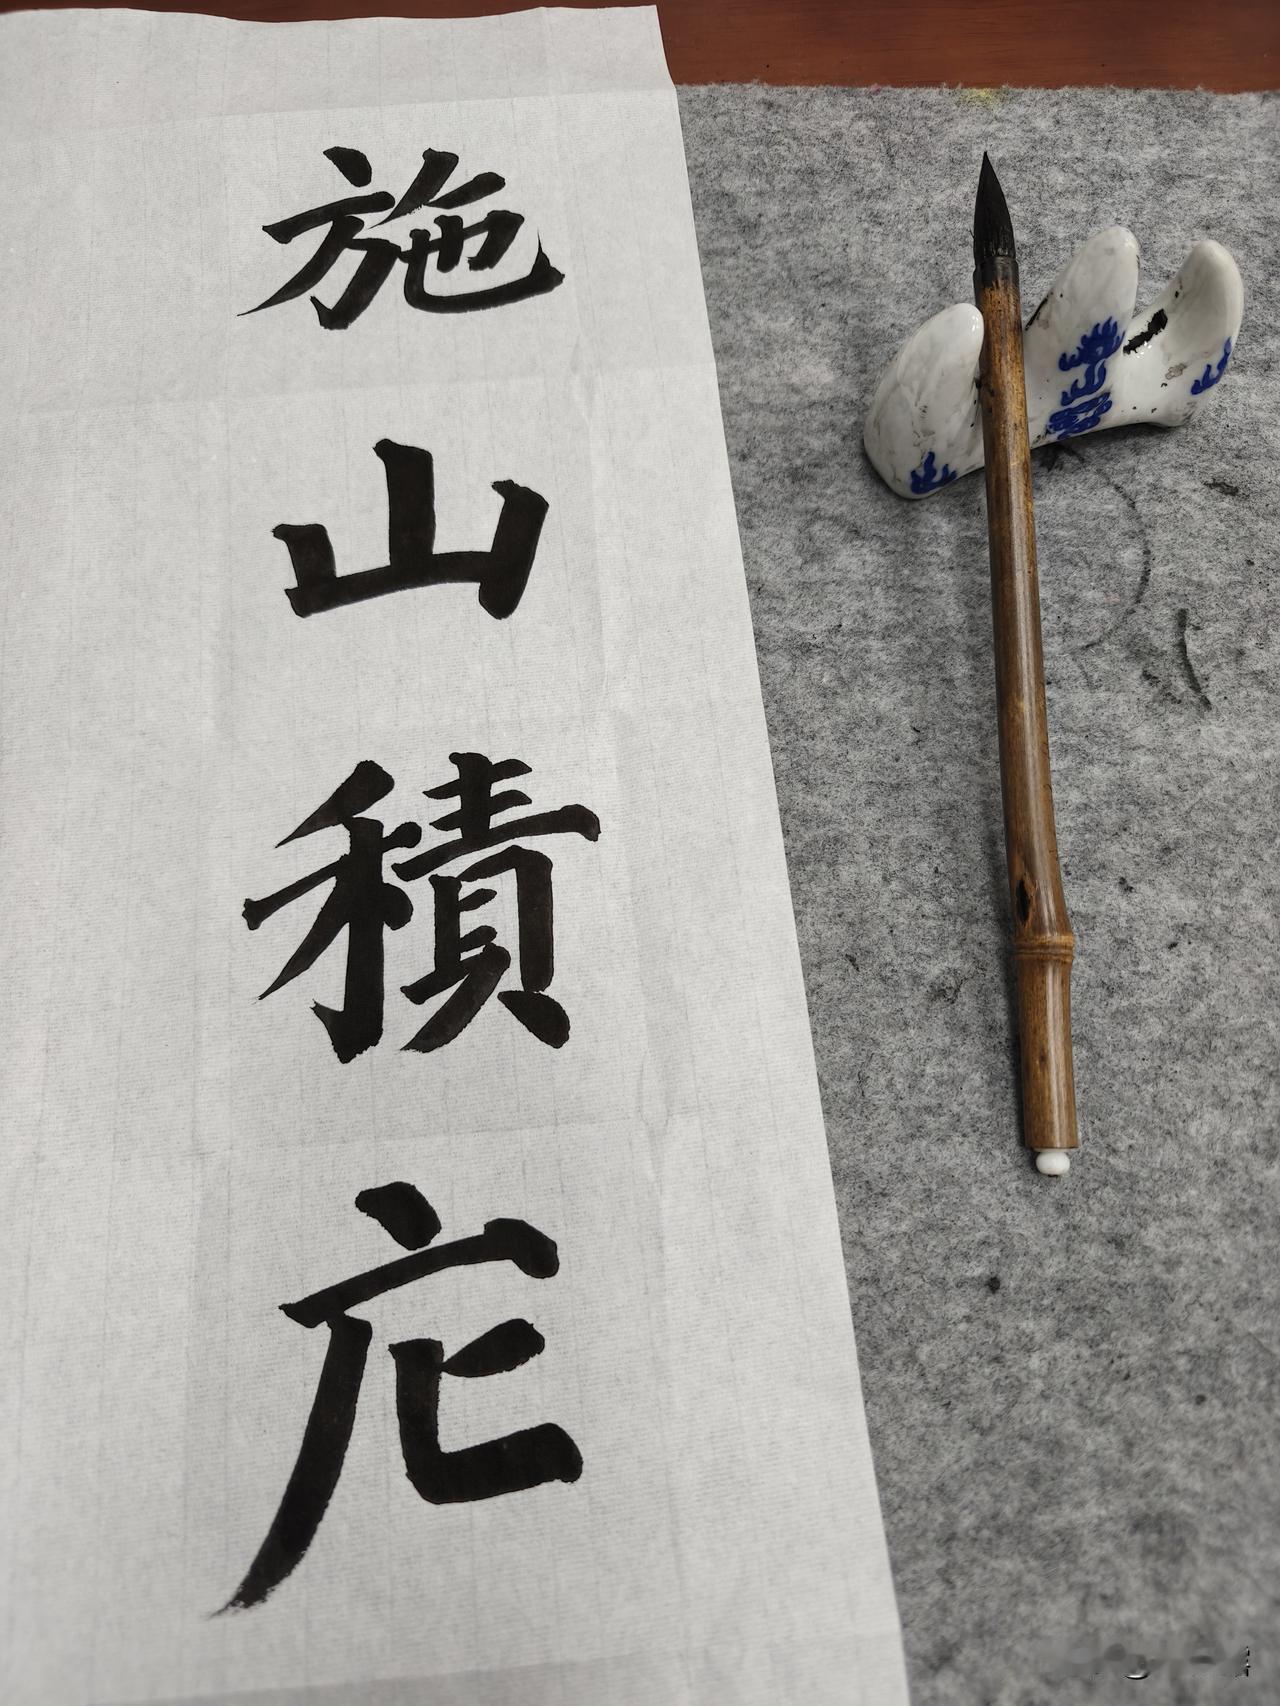 施山積庀